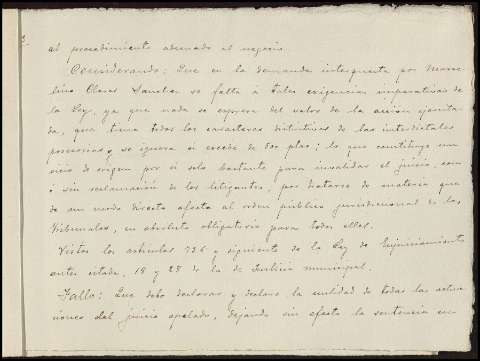 al procedimiento adecuado al negocio.
Considerando: Que en la demanda interpuesta por Marce-
lino Claros Sanchez se falta á tales exigencias imperativas de
la Ley, ya que nada se expresa del valor de la acción ejercita-
da, que tiene todos los caracteres distintivos de los interdictales
posesorios y se ignora si excede de dos ptas; lo que constituye un
vicio de origen por si solo bastante para invalidar el juicio, con
ó sin reclamación de los litigantes, por tratarse de materia que
de un modo directo afecta al orden público jurisdiccional de los
Tribunales, en absoluto obligatorio para todos ellos.
Vistos los articulos 736 y siguiente de la Ley de Enjuiciamiento
antes citada, 18 y 28 de la de Justicia municipal.
Fallo: Que debo declarar y declaro la nulidad de todas las actua-
ciones del juicio apelado, dejando sin efecto la sentencia en